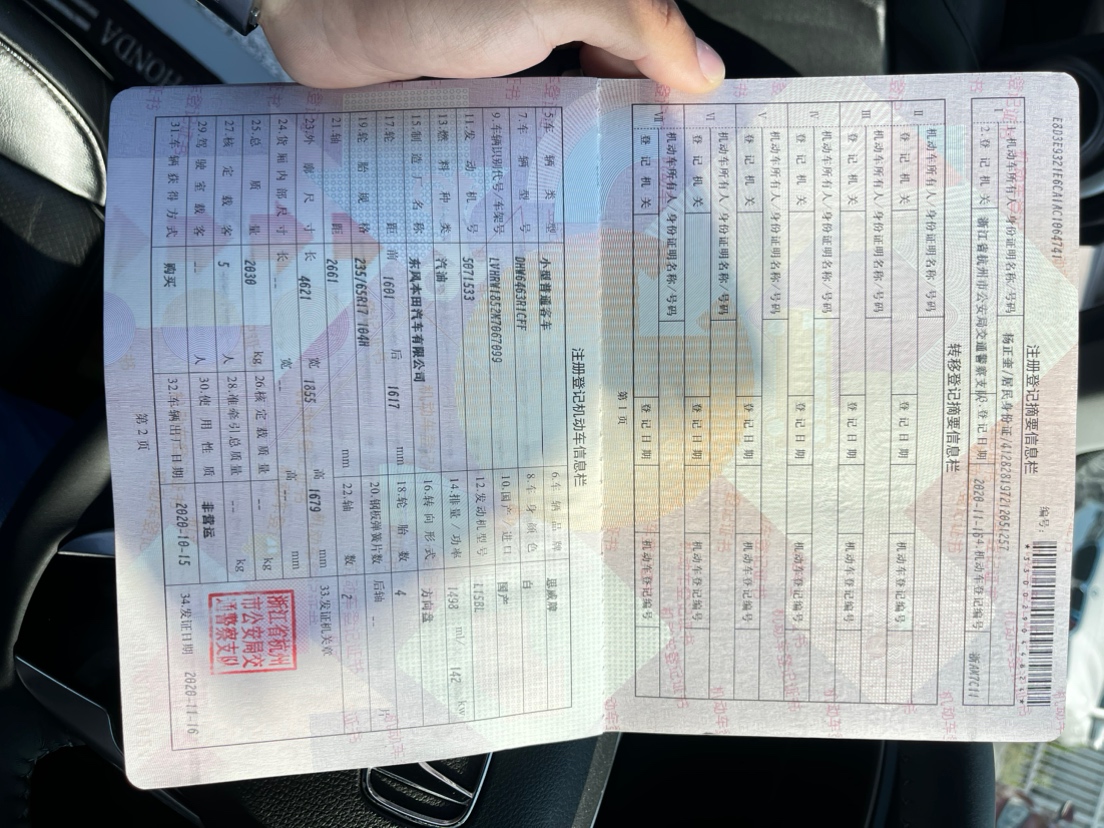 E8D3E9321E6CA1AC1064741
编号：
注册登记摘要信息栏
I
1.机动车所有人/身份证明名称/号码 杨正奎/居民身份证/412828197212051257
2.登记机关 浙江省杭州市公安局交通警察支队 3.登记日期 2020-11-16 4.机动车登记编号 浙AM7C11
转移登记摘要信息栏
II
机动车所有人/身份证明名称/号码
登记机关 登记日期 机动车登记编号
III
机动车所有人/身份证明名称/号码
登记机关 登记日期 机动车登记编号
IV
机动车所有人/身份证明名称/号码
登记机关 登记日期 机动车登记编号
V
机动车所有人/身份证明名称/号码
登记机关 登记日期 机动车登记编号
VI
机动车所有人/身份证明名称/号码
登记机关 登记日期 机动车登记编号
VII
机动车所有人/身份证明名称/号码
登记机关 登记日期 机动车登记编号
第 1 页
注册登记机动车信息栏
5.车辆类型 小型普通客车 6.车辆品牌 思威牌
7.车辆型号 DHW6463R1CFF 8.车身颜色 白
9.车辆识别代号/车架号 LVHRW1852M7067099 10.国产/进口 国产
11.发动机号 5071533 12.发动机型号 L15BL
13.燃料种类 汽油 14.排量/功率 1498 ml/ 142 kw
15.制造厂名称 东风本田汽车有限公司 16.转向形式 方向盘
17.轮距 前 1601 后 1617 mm 18.轮胎数 4
19.轮胎规格 235/65R17 104H 20.钢板弹簧片数 后轴 -- 片
21.轴距 2661 mm 22.轴数 2
23.外廓尺寸 长 4621 宽 1855 高 1679 mm 33.发证机关章
24.货厢内部尺寸 长 -- 宽 -- 高 -- mm
25.总质量 2030 kg 26.核定载质量 -- kg
27.核定载客 5 人 28.准牵引总质量 -- kg
29.驾驶室载客 -- 人 30.使用性质 非营运
31.车辆获得方式 购买 32.车辆出厂日期 2020-10-15 34.发证日期 2020-11-16
浙江省杭州
市公安局交
通警察支队
第 2 页
HONDA